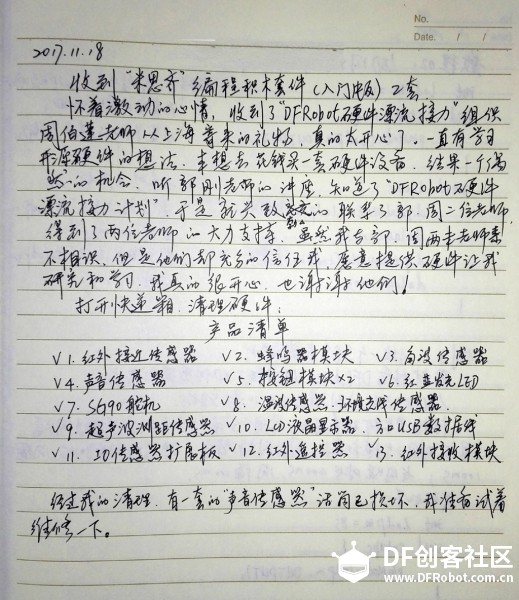 No.
Date. / /
2017.11.18
收到"米思齐"编程积木套件(入门版)2套
怀着激动的心情,收到了"DFRobot硬件漂流接力"组织
周伯莲老师从上海寄来的礼物,真的太开心了。一直有学习
开源硬件的想法,幸想去花钱买一套硬件设备,结果一个偶
然的机会,听郭刚老师的讲座,知道了"DFRobot硬件
漂流接力计划",于是就兴致的联系了郭、周二位老师,
得到了两位老师的大力支持。虽然我与郭、周两老师素
不相识,但是他们却充分的信任我,愿意提供硬件让我
研究和学习,我真的很开心,也谢谢他们!
打开快递箱,清理硬件:
产品清单
√1.红外接近传感器 √2.蜂鸣器模块 √3.角度传感器
√4.声音传感器 √5.按钮模块×2 √6.红色发光LED
√7.SG90舵机 √8.温湿传感器、环境光线传感器
√9.超声波测距传感器 √10.LCD液晶显示器、3口USB数据线
√11.IO传感器扩展板 √12.红外遥控器 √13.红外接收模块
经过我的清理,有一套的"声音传感器"话筒已损坏,我准备试着
维修一下。
DF创客社区
www.DFRobot.com.cn